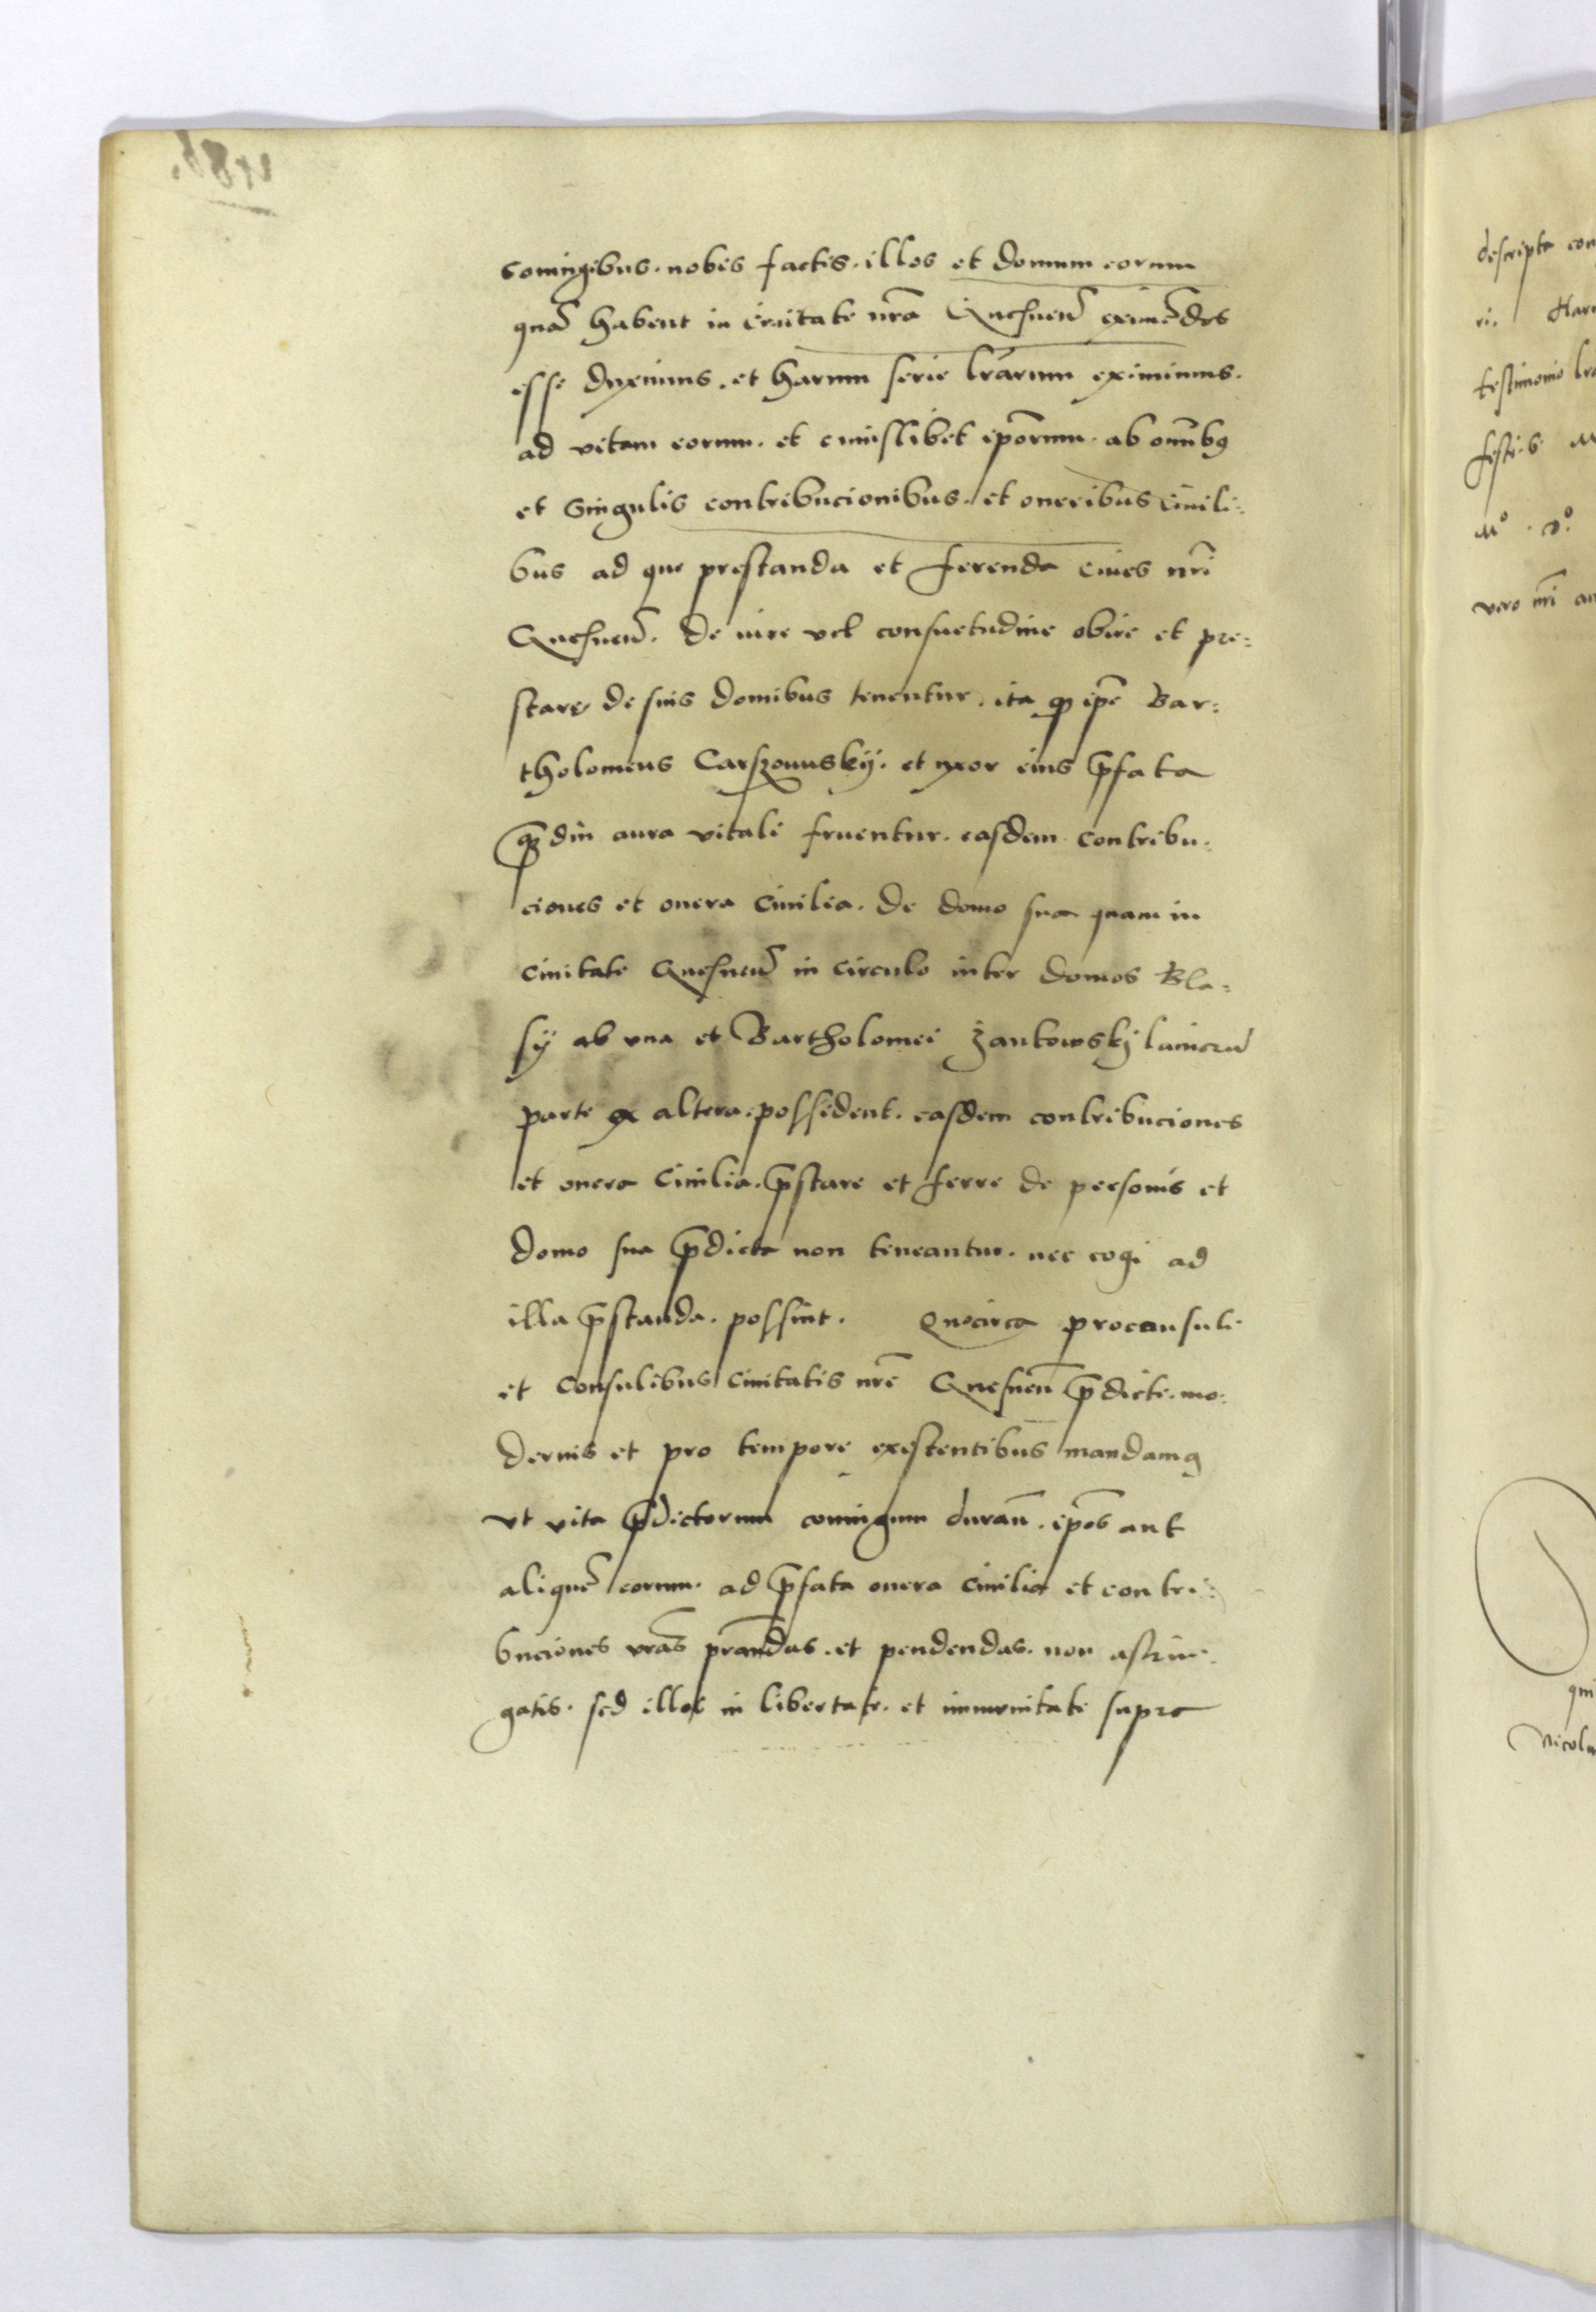 coniugibus. nobis factis. illos et domum eorum
quā habent in ciuitate nrā Gnesneñ eximēdos
esse duximus. et harum serie lrārum eximimus.
ad vitam eorum. et cuiuslibet ip̄orum. ab omībꝯ
et singulis contribucionibus. et oneribus ciuili:
bus ad que prestanda et ferenda ciues nrī
Gnesneñ. de iure vel consuetudine obire et pre:
stare de suis domibus tenentur. ita ꝙ ip̄e Bar:
tholomeus Carszouuskÿ. et vxor eius p̄fata
ꝙdiu aura vitali fruentur. easdem contribu:
ciones et onera ciuilia. de domo sua quam in
ciuitate Gnesneñ in circulo inter domos Bla:
sÿ ab vna et Bartholomei Zankowskj
parte ex altera. possident. easdem contribuciones
et onera ciuilia. p̄stare et ferre de personis et
domo sua p̄dicta non teneantur. nec cogi ad
illa p̄standa. possint. Quocirca proconsuli
et consulibus ciuitatis nrē Gnesneñ p̄dicte. mo:
dernis et pro tempore existentibus mandamꝯ
vt vita p̄dictorum coniugum durañ. ip̄os aut
aliquē eorum. ad p̄fata onera ciuilia et contri:
buciones vrās prandas. et pendendas. non astrin:
gatis. sed illos in libertate. et immunitate supra
descripta con
ri. Har
testimonio lrā
festi. S
Mº . dº.
vero nrī an
qui
Nicola